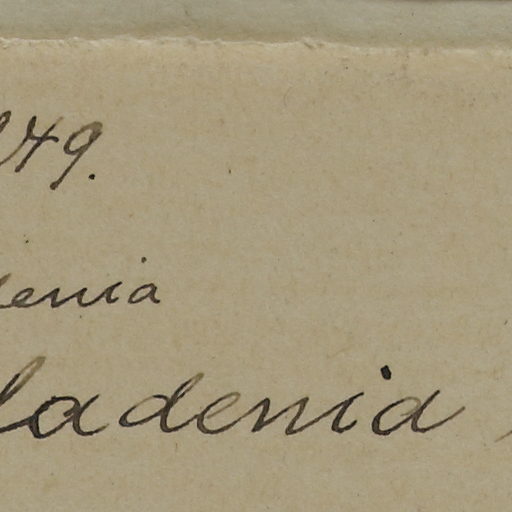 49.
denia
ladenia